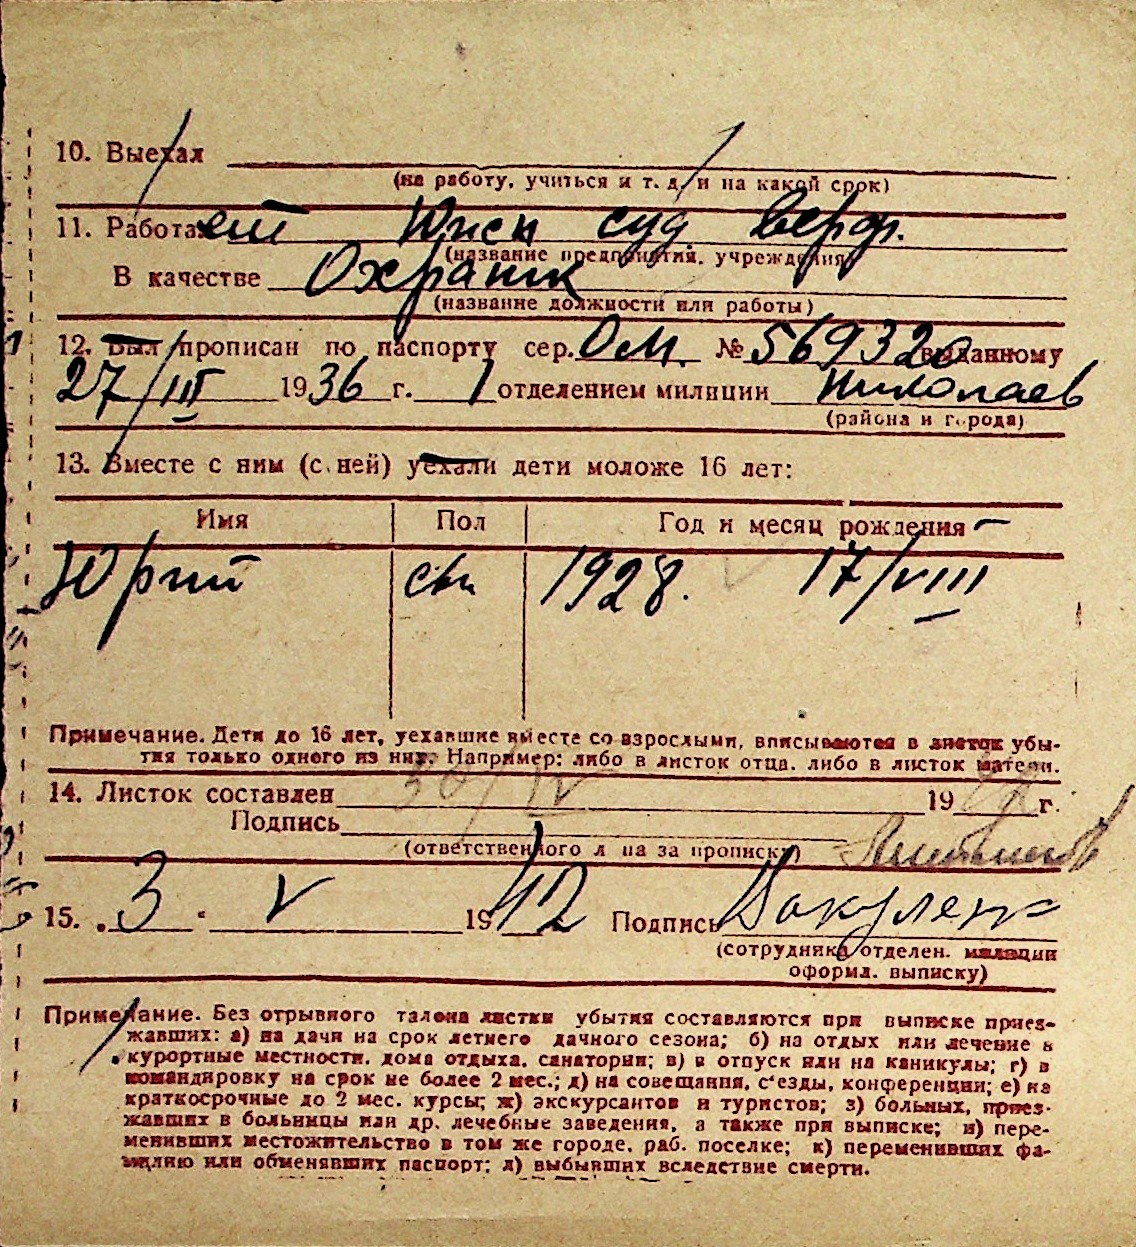 10. Выехал
(на работу, учиться и т. д. и на какой срок)
11. Работает Южн суд верф.
(название предприятия, учреждения)
В качестве Охранник
(название должности или работы)
12. Был прописан по паспорту сер. ОМ. № 569320 выданному
27/III 1936 г. 1 отделением милиции Николаев
(района и города)
13. Вместе с ним (с ней) уехали дети моложе 16 лет:
Имя Пол Год и месяц рождения
Юрий сын 1928. 17/VIII
Примечание. Дети до 16 лет, уехавшие вместе со взрослыми, вписываются в листок убы-
тия только одного из них. Например: либо в листок отца, либо в листок матери.
14. Листок составлен 30/IV 19 г.
Подпись
(ответственного лица за прописку)
15. 3 V 1942 Подпись
(сотрудника отделен. милиции
оформл. выписку)
Примечание. Без отрывного талона листки убытия составляются при выписке приез-
жавших: а) на дачи на срок летнего дачного сезона; б) на отдых или лечение в
курортные местности, дома отдыха, санатории; в) в отпуск или на каникулы; г) в
командировку на срок не более 2 мес.; д) на совещания, с'езды, конференции; е) на
краткосрочные до 2 мес. курсы; ж) экскурсантов и туристов; з) больных, приез-
жавших в больницы или др. лечебные заведения, а также при выписке; и) пере-
менивших местожительство в том же городе, раб. поселке; к) переменивших фа-
милию или обменявших паспорт; л) выбывших вследствие смерти.